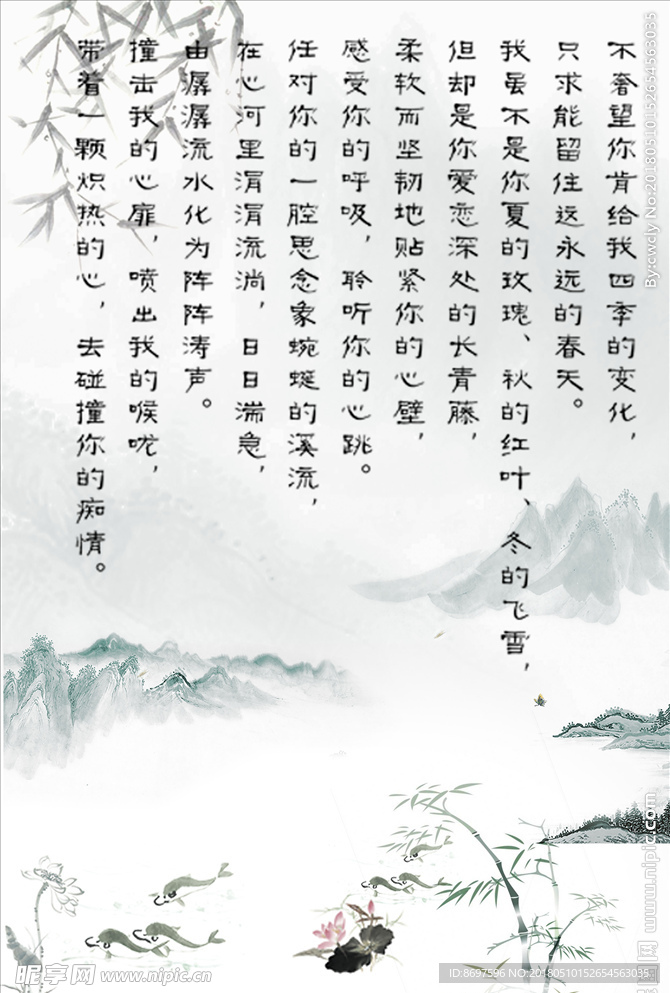 不奢望你肯给我四季的变化，
只求能留住这永远的春天。
我虽不是你夏的玫瑰、秋的红叶、冬的飞雪，
但却是你爱恋深处的长青藤，
柔软而坚韧地贴紧你的心壁，
感受你的呼吸，聆听你的心跳。
任对你的一腔思念象蜿蜒的溪流，
在心河里涓涓流淌，日日湍急，
由潺潺流水化为阵阵涛声。
撞击我的心扉，喷出我的喉咙，
带着一颗炽热的心，去碰撞你的痴情。
By:cwcly No:20180510152654563035
www.nipic.com
昵享网 www.nipic.cn
ID:8697596 NO:20180510152654563035